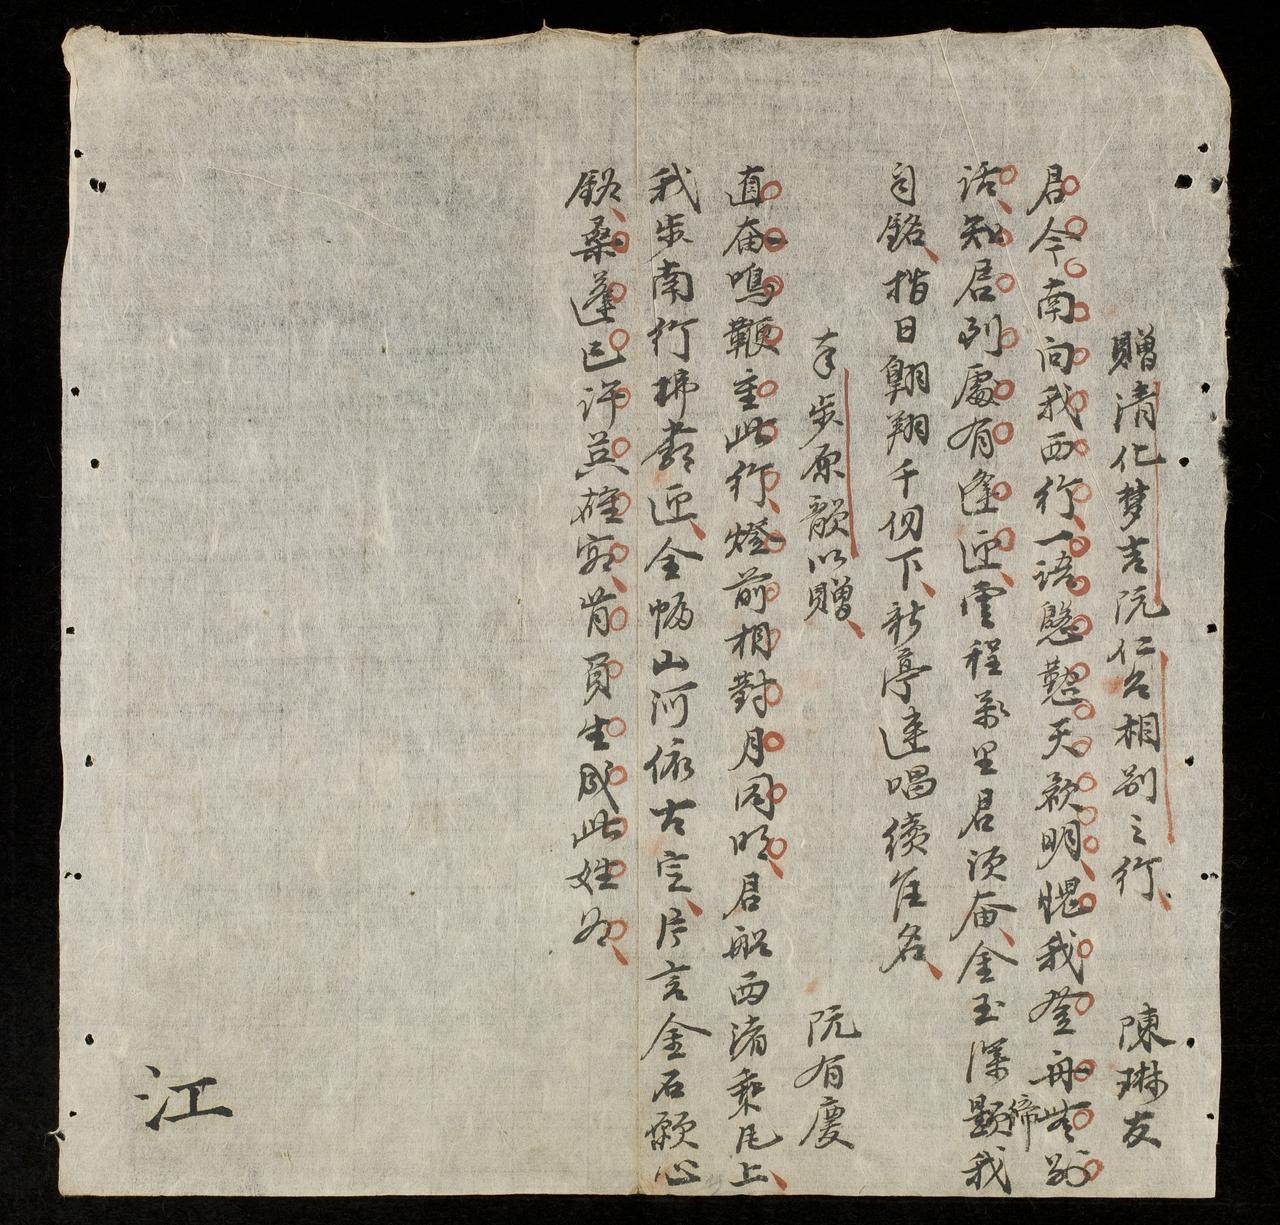 贈清化梦吉阮仁名相别之行 陳琳友
君今南向我西行一語慇懃天欲明愧我登舟嗟別
話知君列處有逢迎雲程萬里君須奋金玉深題締我
自銘指日翱翔千仞下新亭達唱續佳名
奉步原韻以贈 阮有慶
直奋鳴鞭重此行燈前相對月同明君船西渚乘凡上
我步南行拂露迎全幅山河依古定片言金石願心
銘桑蓬已許英雄客肯負生成此姓名
江